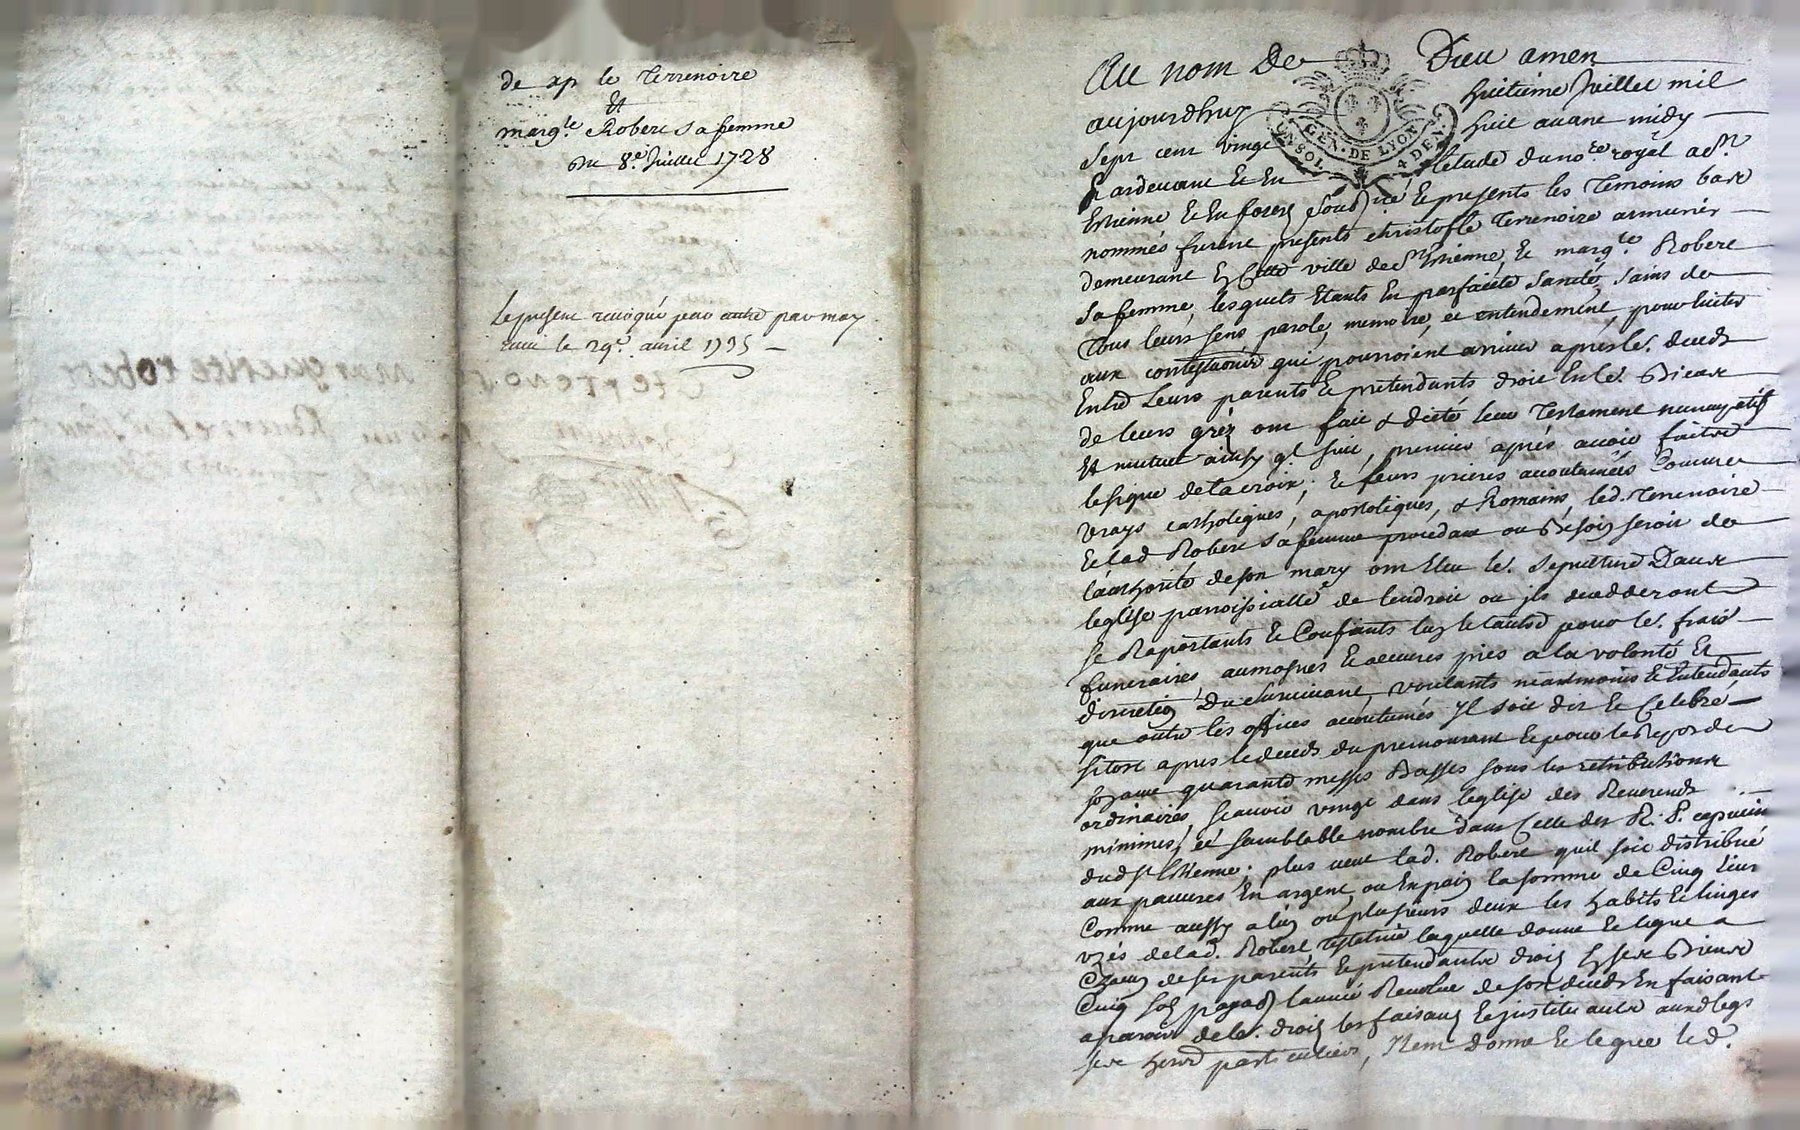 de xp le Terrenoire
Et
marg.te Robert sa femme
Du 8.e Juillet 1728
Le present revoqué par autre par moy
receu le 29.e avril 1735
Au nom De Dieu amen
aujourdhuy huitième Juillet mil
Sept cent vingt huit avant midy
Pardevant Et En létude du no.re royal a St.
Estienne Et En forez Soubz.né Et presents les Temoins bas
nommés furent presents christofle Terrenoire armurier
demeurant En Cette ville de St Estienne, Et marg.te Robert
Sa femme, lesquels Etants En parfaitte Santé, Sains de
Tous leurs sens parole, memoire, et entendement, pour Eviter
aux contestations qui pourroient arriver après le. deceds
Entre Leurs parents Et pretendants droit En le. Biens
de leurs gréz ont fait & dicté leur Testament nuncupatif
Et mutuel ainsy q.l suit, premier après avoir fait
le signe de la croix, Et leurs prieres accoutumées Comme
vrays catholiques, apostoliques, & Romains, led. Terrenoire
Et lad. Robert sa femme procedant ou Besoin seroit de
l'authorité de son mary ont Eleu le. Sepulture Dans
leglise parroissialle de lendroit ou ils decedderont
Se Raportants Et Confiants lun Et lautre pour le. frais
funeraires, aumosnes Et oeuvres pies a la volonté Et
discretion Du Survivant, voulants neantmoins Et Entendants
que outre les offices accoutumés Il soit dit Et Celebré
sitost apres le deceds du premourant Et pour le Repos de
son ame quarante messes Basses sous les retributions
ordinaires, scavoir vingt dans leglise des Reverends
minimes, et semblable nombre dans Celle des R. P. capucin
dud. St Etienne; plus veut lad. Robert quil soit distribué
aux pauvres En argent, ou En pain la somme de Cinq livres
Comme aussy a lun ou plusieurs deux les habits Et linges
uzés de lad. Robert, testatrice laquelle donne Et legue a
Chacun de ses parents Et pretendants droit En ses Biens
Cinq sols payables lannée Revolue de son deceds En faisant
aparoir de le. droit les faisant Et instituant auxd. legs
ses heritiers particuliers, Item donne Et legue led.
GEN. DE LYON
UN SOL
4 DEN.
marguerite robert